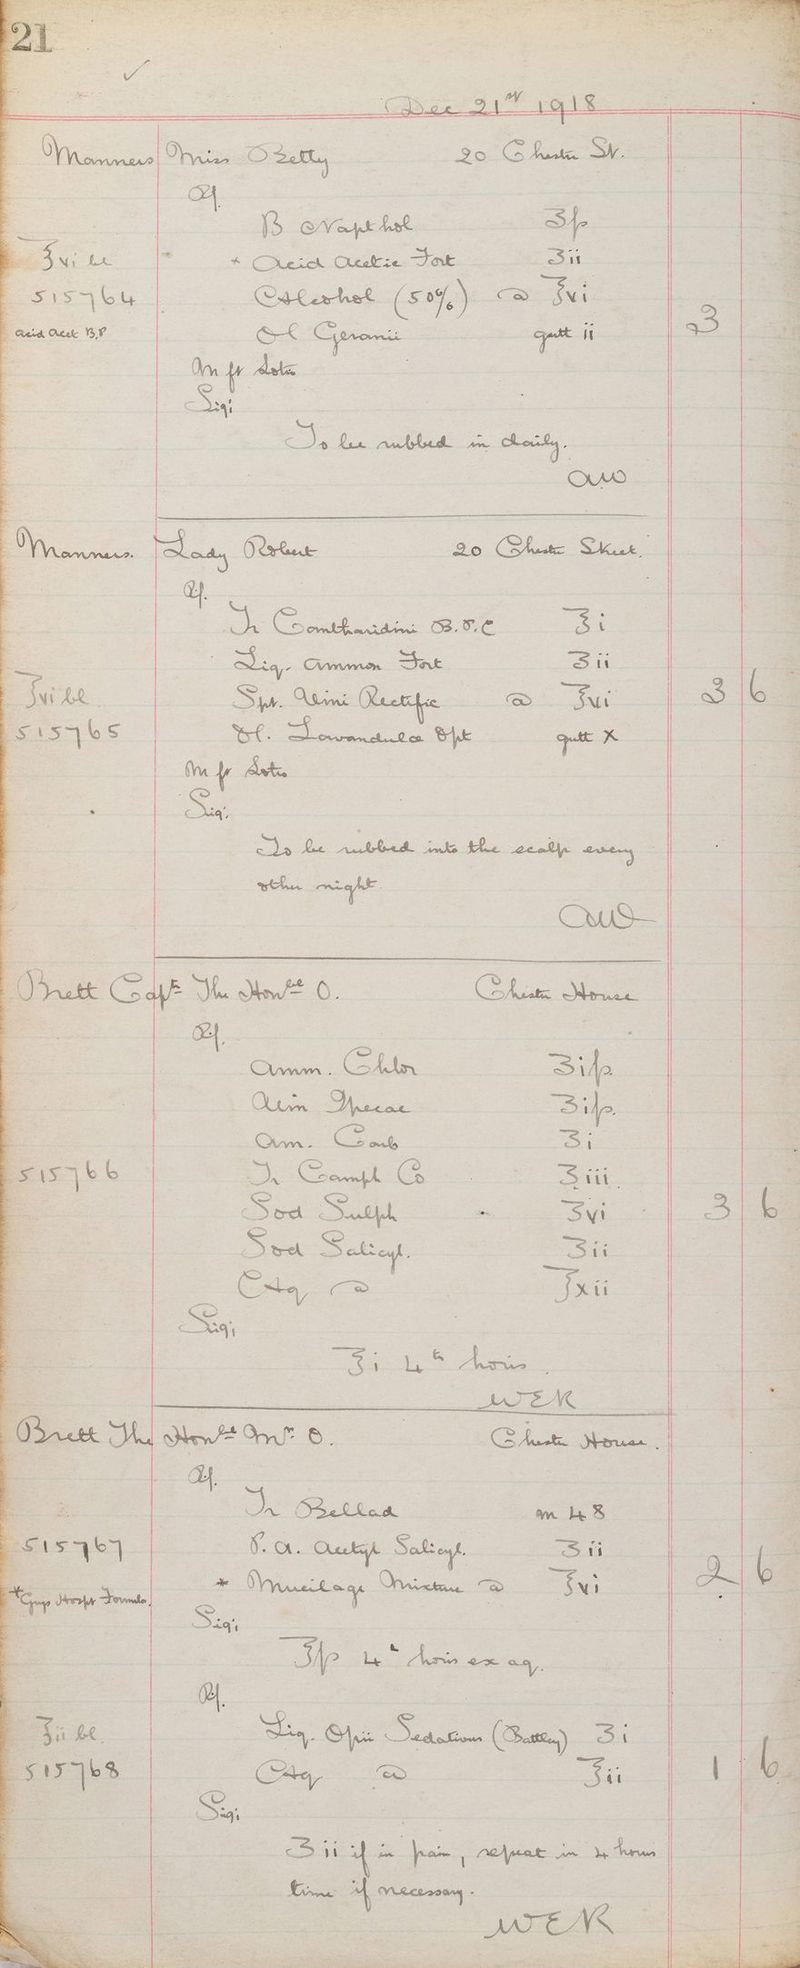 21
Dec 21st 1918
Manners Miss Betty 20 Chester St.
Rx.
B Napthol ʒſs
℥vi bl * Acid Acetic Fort ʒii
515764 Alcohol (50%) @ ℥vi
Acid Acet B.P Ol Geranii gutt ii 3
M ft Lotio
Sig:
To be rubbed in daily.
AW
Manners. Lady Robert 20 Chester Street.
Rx.
Tr Cantharidini B.P.C ℥i
Liq. Ammon Fort ʒii
℥vi bl. Spt. Vini Rectific @ ℥vi 3 6
515765 Ol. Lavandulae Opt gutt X
M ft Lotio
Sig:
To be rubbed into the scalp every
other night
AW
Brett Capt The Honble O. Chester House
Rx.
Amm. Chlor ʒiſs
Vin Ipecac ʒiſs.
Am. Carb ʒi
515766 Tr Camph Co ʒiii.
Sod Sulph ʒvi 3 6
Sod Salicyl. ʒii
Aq @ ℥xii
Sig:
℥i 4th horis.
WER
Brett The Honble Mrs O. Chester House.
Rx.
Tr Bellad m 48
515767 P. A. Acetyl Salicyl. ʒii
* Mucilage Mixture @ ℥vi 2 6
*Guys Hospt Formula.
Sig:
℥ſs 4th horis ex aq.
Rx.
℥ii bl. Liq. Opii Sedativus (Battley) ʒi
515768 Aq @ ℥ii 1 6
Sig:
ʒii if in pain, repeat in 4 hours
time if necessary.
WER